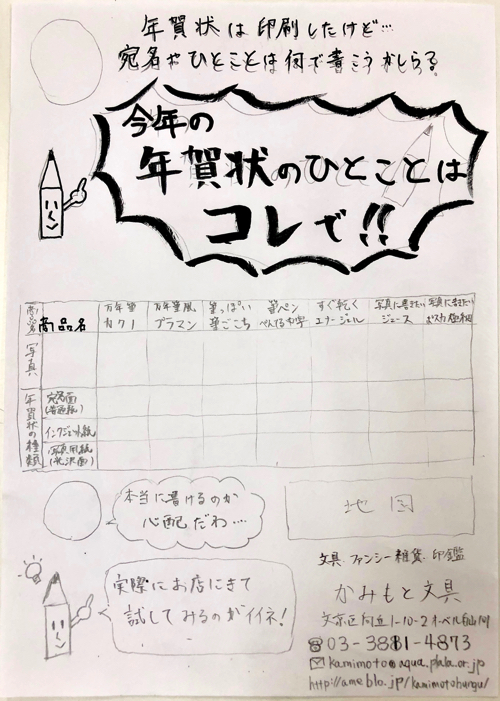 年賀状は印刷したけど…
宛名やひとことは何で書こうかしら?
今年の
年賀状のひとことは
コレで!!
商品名
商品名
万年筆
カクノ
万年筆風
プラマン
筆っぽい
筆ごこち
筆ペン
ぺんてる中字
すぐ乾く
エナージェル
写真に書きたい
ジュース
写真に書きたい
写真
年賀状の種類
宛名面
(普通紙)
インクジェット紙
写真用紙
(光沢面)
本当に書けるのか
心配だわ…
地図
実際にお店にきて
試してみるのがイイネ!
文具 ファンシー雑貨 印鑑
かみもと文具
文京区向丘1-10-2
☎03-3811-4873
kamimoto@aqua.plala.or.jp
http://ameblo.jp/kamimotobungu/